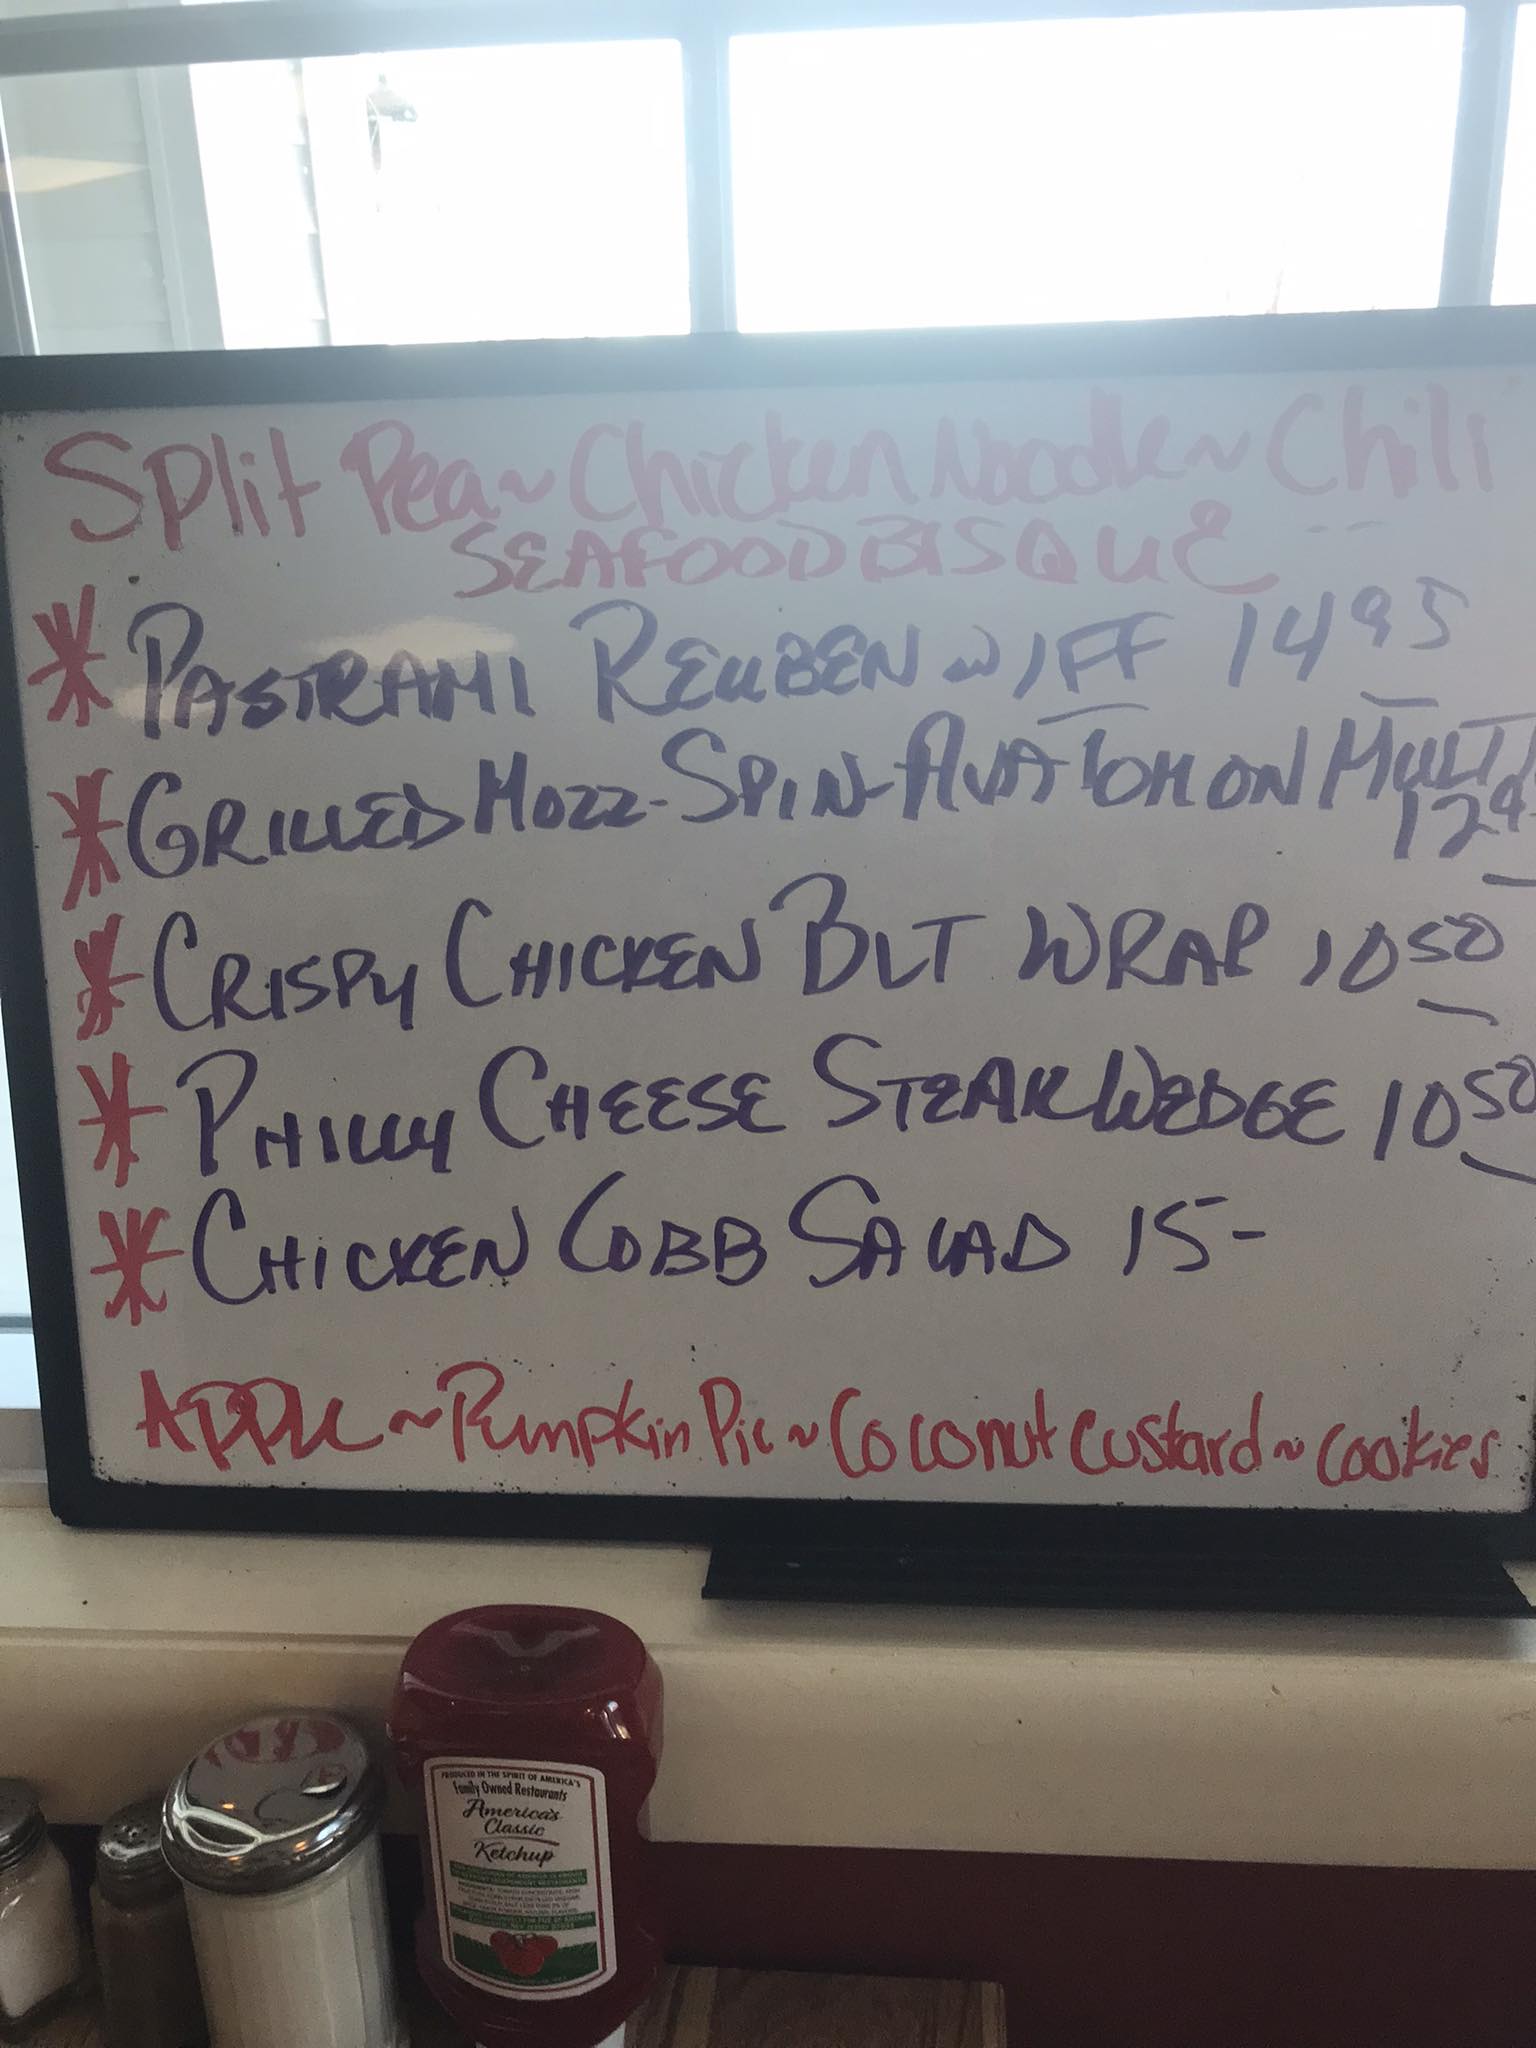 Split Pea ~ Chicken Noodle ~ Chili
SEAFOOD BISQUE
* PASTRAMI REUBEN w/FF 14 95
* GRILLED MOZZ-SPIN-AVA TOM ON MULTI
12 9
* CRISPY CHICKEN BLT WRAP 10 50
* PHILLY CHEESE STEAK WEDGE 10 50
* CHICKEN COBB SALAD 15-
APPLE ~ Pumpkin Pie ~ Coconut Custard ~ Cookies
PRODUCED IN THE SPIRIT OF AMERICA'S
Family Owned Restaurants
America's
Classic
Ketchup